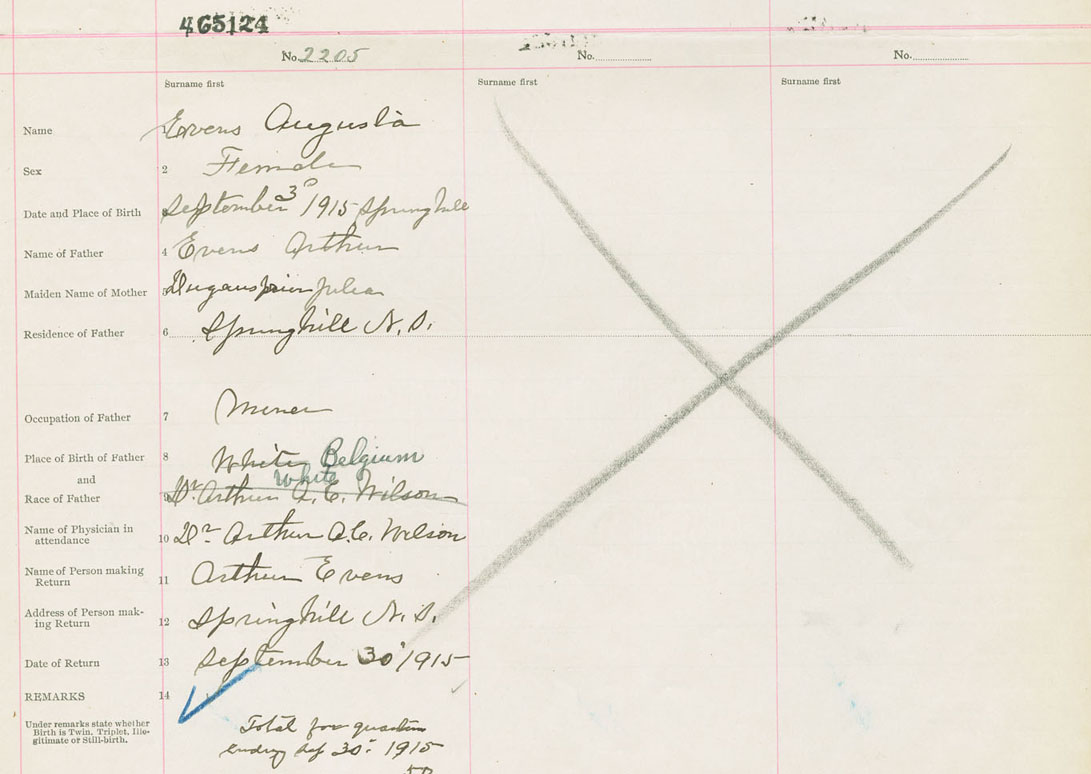 465124
No. 2205 No. No.
Surname first Surname first Surname first
Name Evens Augusta
Sex 2 Female
Date and Place of Birth September 3 1915 Springhill
Name of Father 4 Evens Arthur
Maiden Name of Mother 5 Julia
Residence of Father 6 Springhill N.S.
Occupation of Father 7 Miner
Place of Birth of Father 8 White Belgium
and White
Race of Father 9 Dr Arthur A. E. Wilson
Name of Physician in
attendance 10 Dr Arthur A.E. Wilson
Name of Person making
Return 11 Arthur Evens
Address of Person mak-
ing Return 12 Springhill N.S.
Date of Return 13 September 30 1915
REMARKS 14
Under remarks state whether
Birth is Twin, Triplet, Ille-
gitimate or Still-birth.
Total for quarter
ending Sep 30. 1915